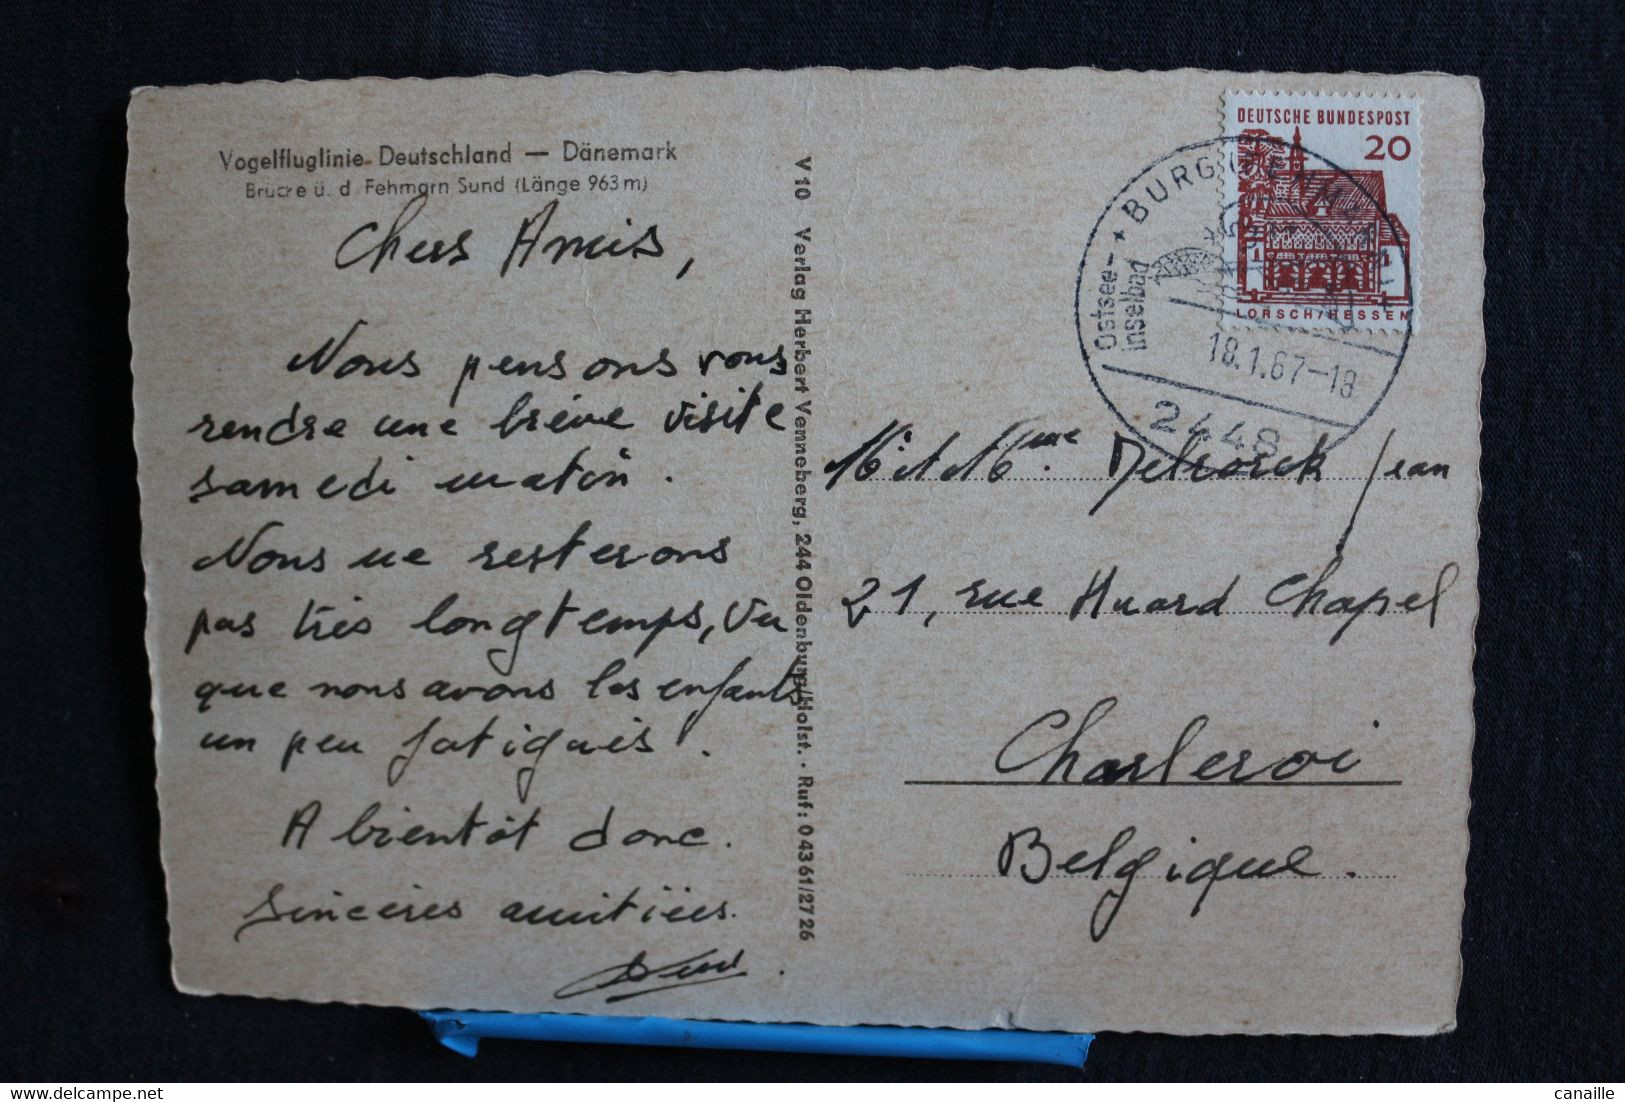 Vogelfluglinie Deutschland — Dänemark
Brücke ü. d. Fehmarn Sund (Länge 963 m)
Chers Amis,
Nous pensons vous
rendre une brève visite
samedi matin.
Nous ne resterons
pas très longtemps, vu
que nous avons les enfants
un peu fatigués.
A bientôt donc.
Sincères amitiés.
V 10 Verlag Herbert Venneberg, 244 Oldenburg/Holst. · Ruf: 0 43 61/27 26
DEUTSCHE BUNDESPOST
20
LORSCH/HESSEN
* BURG (FEHMARN)
Ostsee-
inselbad
18.1.67-18
2448
M. et Mme. Jean
21, rue Huard Chapel
Charleroi
Belgique.
delcampe.net
canaille